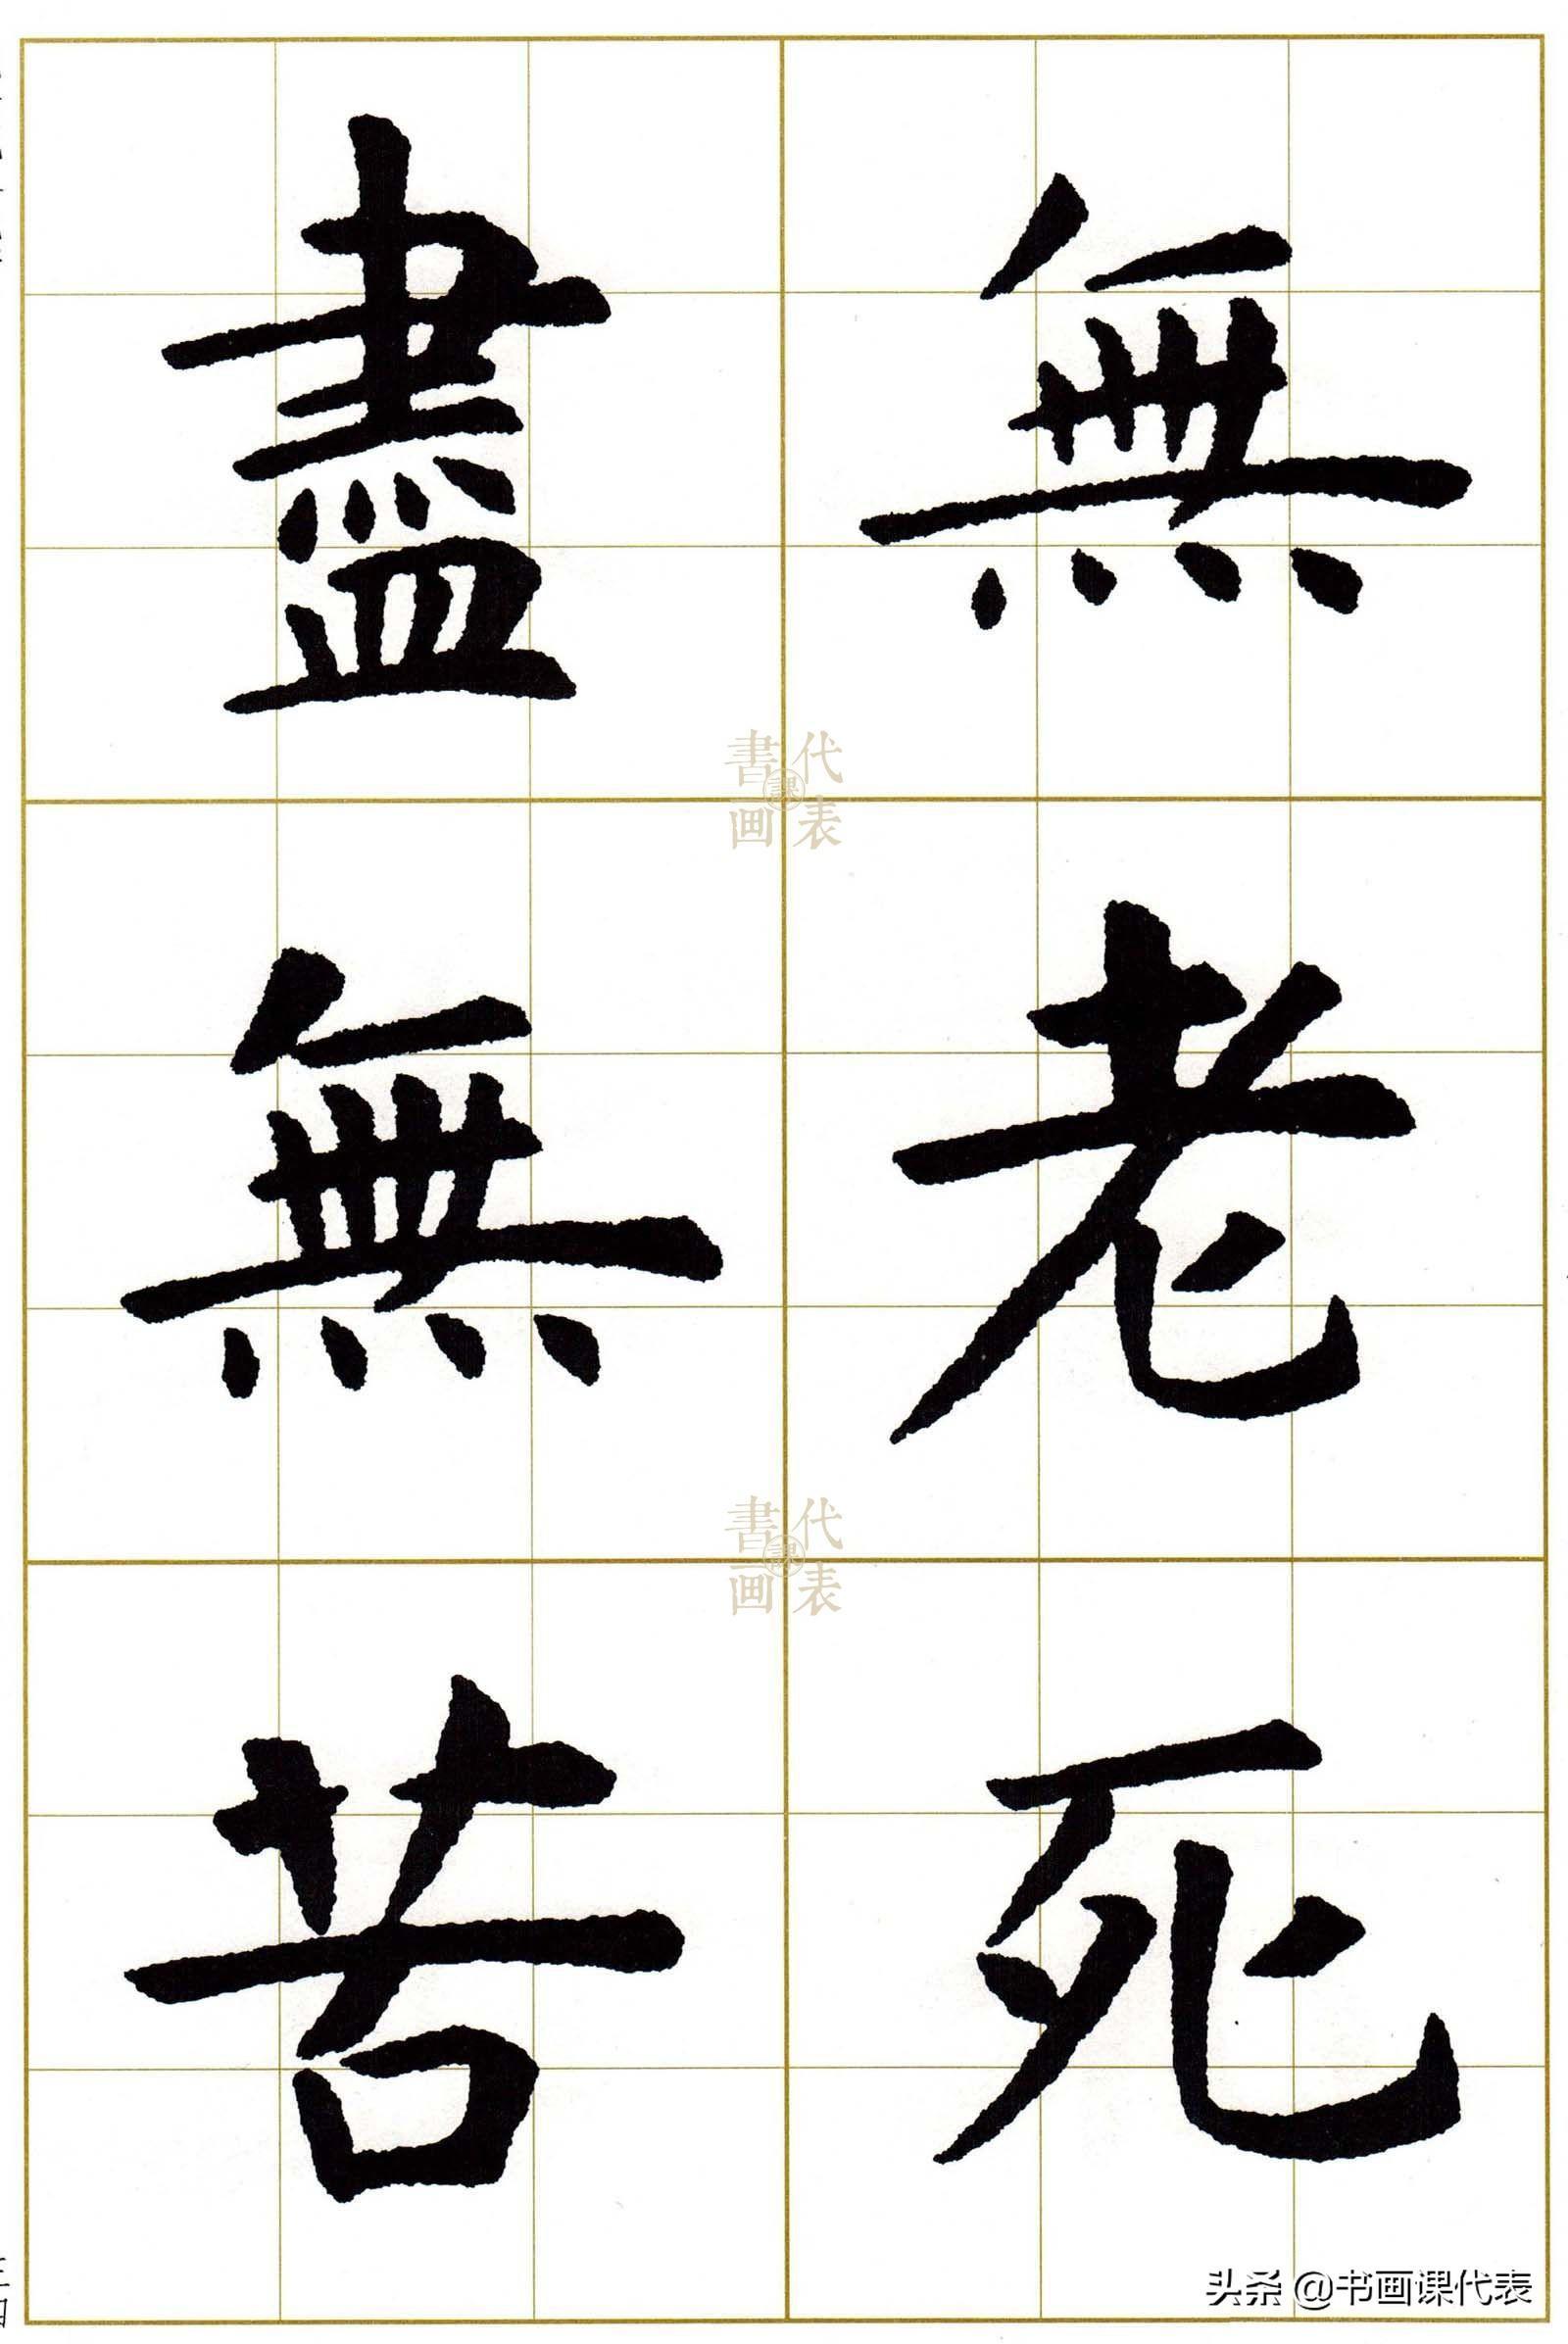 無老死
盡無苦
書画課代表
書画課代表
头条 @书画课代表